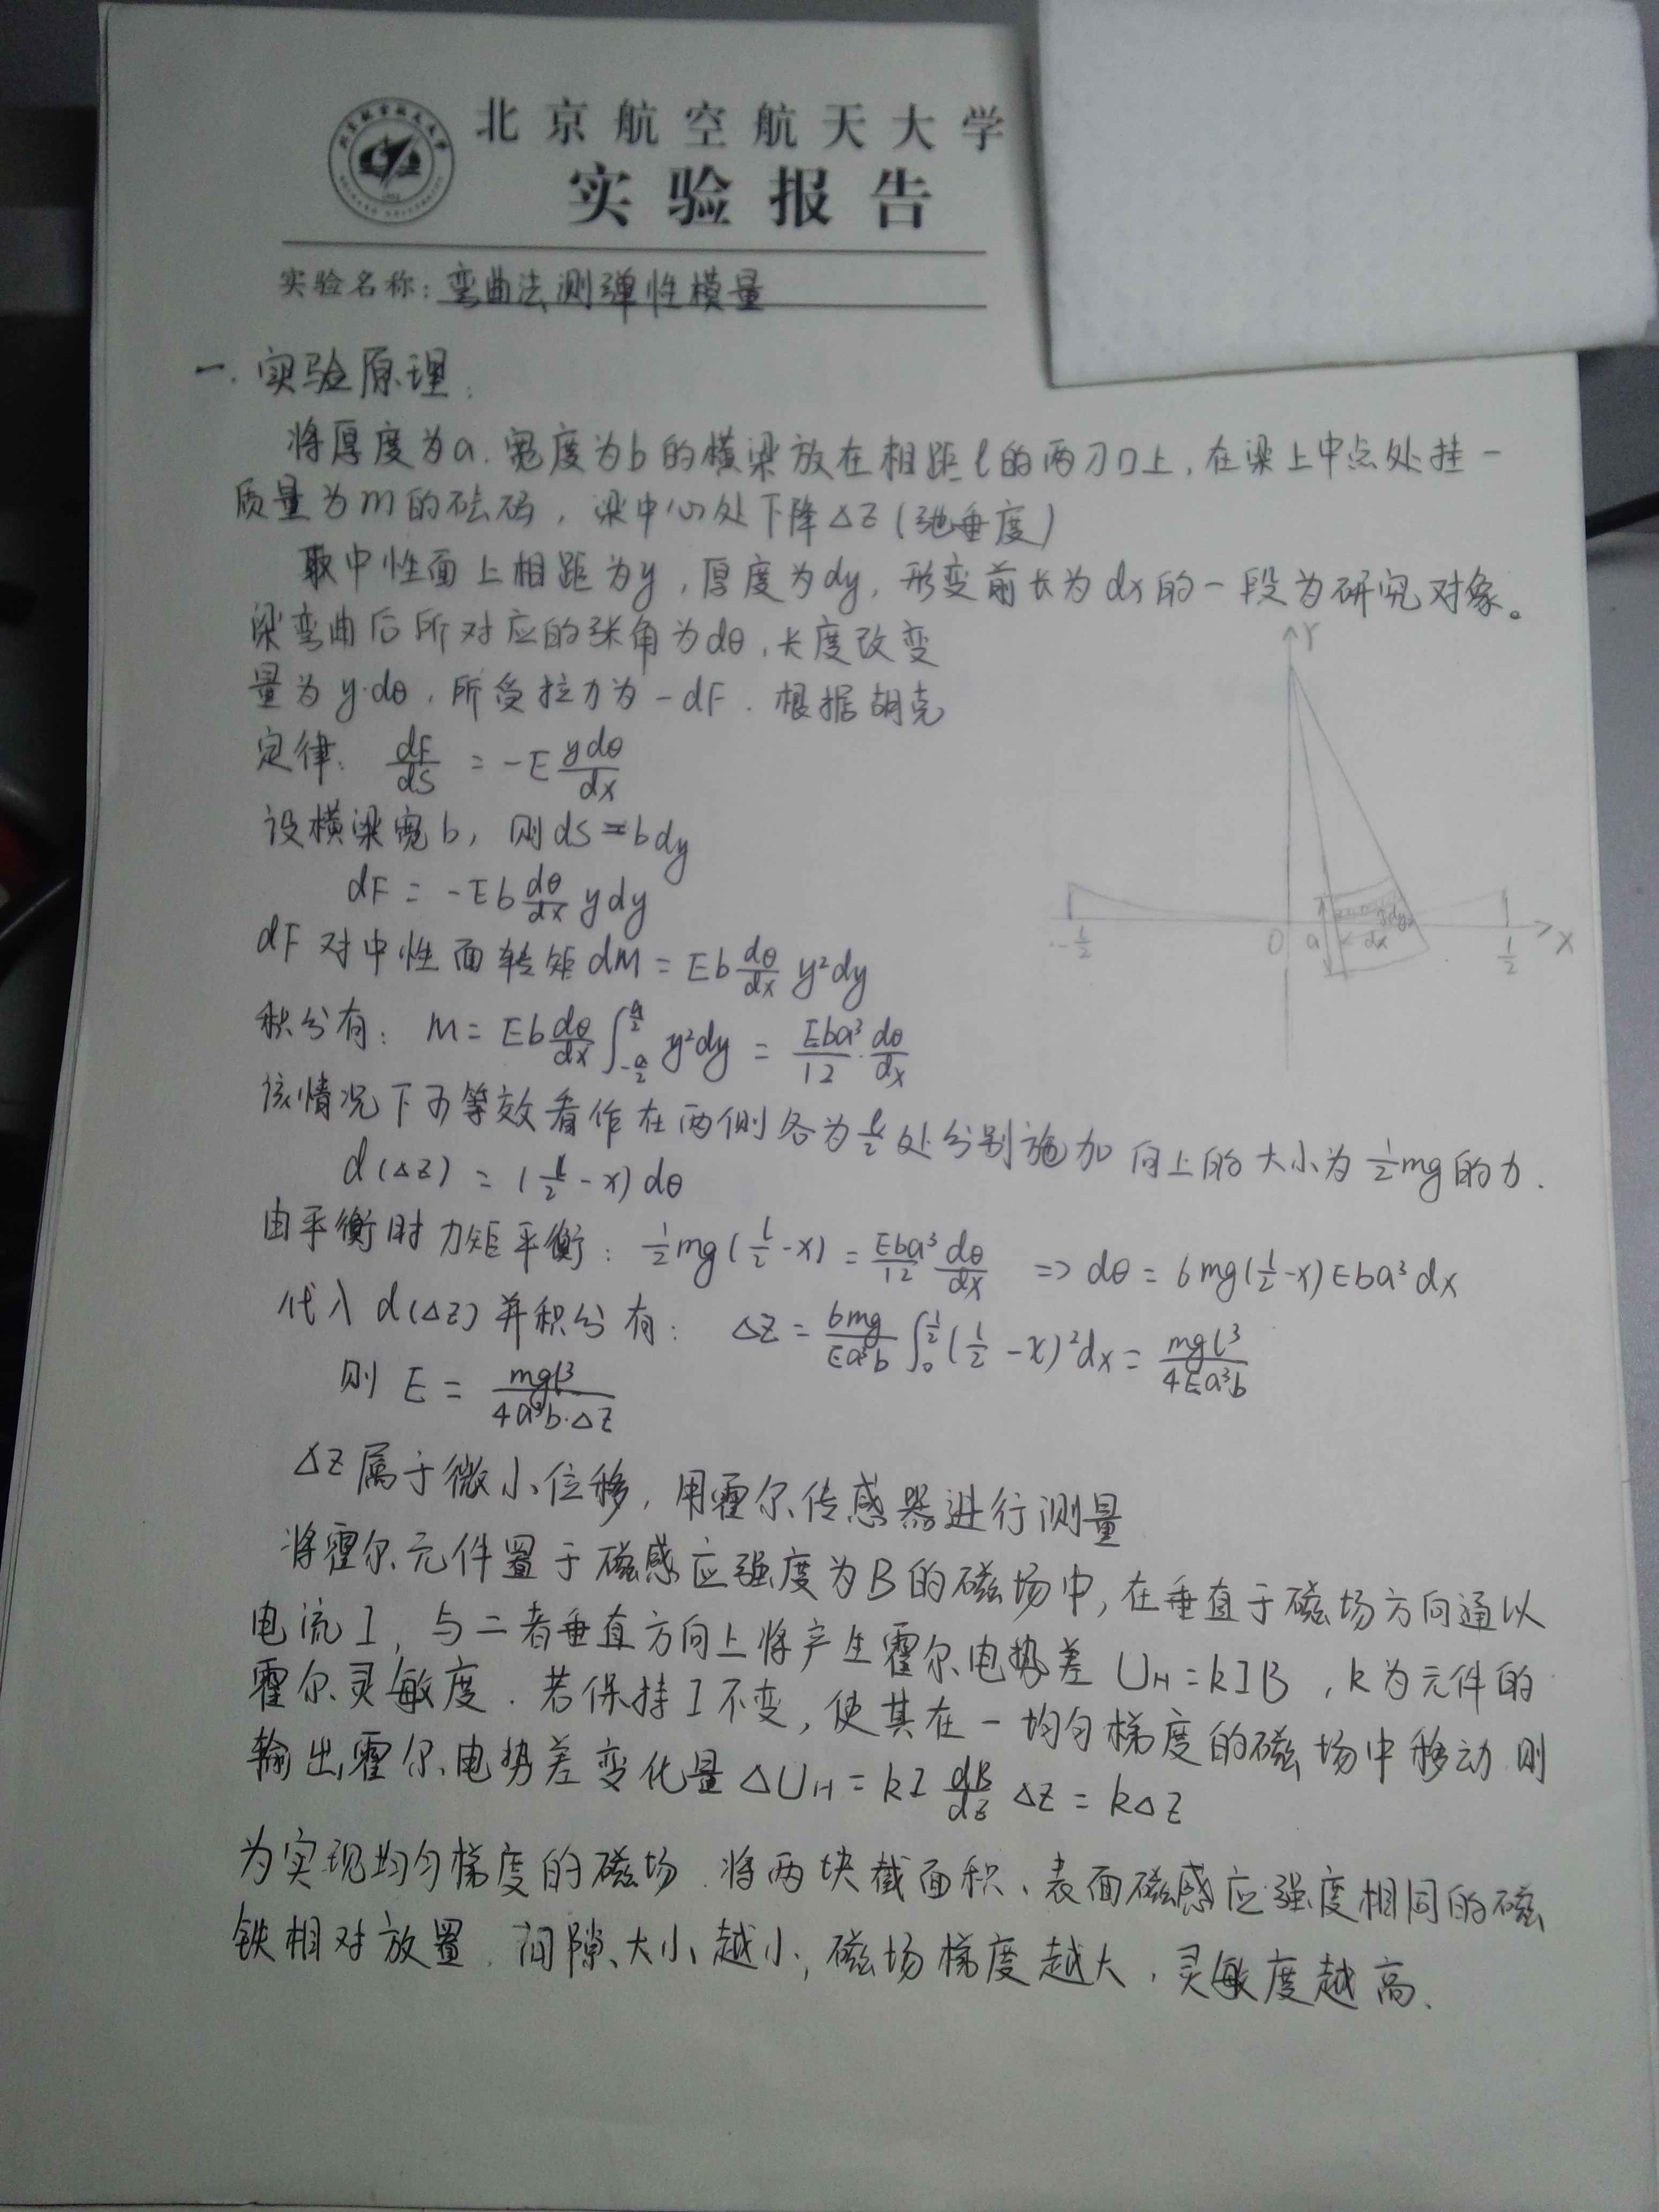 北京航空航天大学
实验报告
实验名称：弯曲法测弹性模量
一. 实验原理：
将厚度为a.宽度为b的横梁放在相距l的两刀口上，在梁上中点处挂一
质量为m的砝码，梁中心处下降ΔZ(弛垂度)
取中性面上相距为y，厚度为dy，形变前长为dx的一段为研究对象。
梁弯曲后所对应的张角为dθ，长度改变
量为y·dθ，所受拉力为-dF．根据胡克
定律： dF/dS = -E ydθ/dx
设横梁宽b，则dS=bdy
dF = -Eb dθ/dx ydy
dF对中性面转矩dM = Eb dθ/dx y²dy
积分有： M = Eb dθ/dx ∫_{-a/2}^{a/2} y²dy = Eba³/12 · dθ/dx
该情况下可等效看作在两侧各为l/2处分别施加向上的大小为½mg的力．
d(ΔZ) = (l/2 - x)dθ
由平衡时力矩平衡： ½mg(l/2 - x) = Eba³/12 dθ/dx => dθ = 6mg(l/2 - x)Eba³dx
代入d(ΔZ)并积分有： ΔZ = 6mg/Ea³b ∫_0^{l/2} (l/2 - x)²dx = mgl³/4Ea³b
则 E = mgl³/4a³b·ΔZ
ΔZ属于微小位移，用霍尔传感器进行测量
将霍尔元件置于磁感应强度为B的磁场中，在垂直于磁场方向通以
电流I，与二者垂直方向上将产生霍尔电势差 U_H = kIB ，k为元件的
霍尔灵敏度．若保持I不变，使其在一均匀梯度的磁场中移动则
输出霍尔电势差变化量ΔU_H = kI dB/dZ ΔZ = kΔZ
为实现均匀梯度的磁场．将两块截面积、表面磁感应强度相同的磁
铁相对放置．间隙大小越小，磁场梯度越大，灵敏度越高、
Y
-l/2
O
a
dx
dy
l/2
X